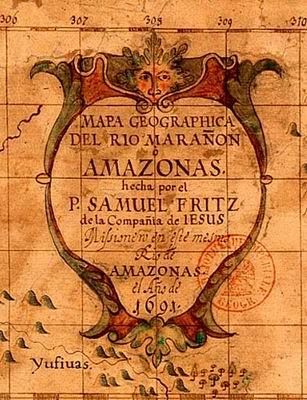 306 307 308 309 310
MAPA GEOGRAPHICA
DEL RIO MARAÑON
o
AMAZONAS.
hecha por el
P. SAMUEL FRITZ
de la Compañia de IESUS
Missionero en este mesmo
Rio de
AMAZONAS.
el Año de
1691.
GEOGR.
Yufiuas.